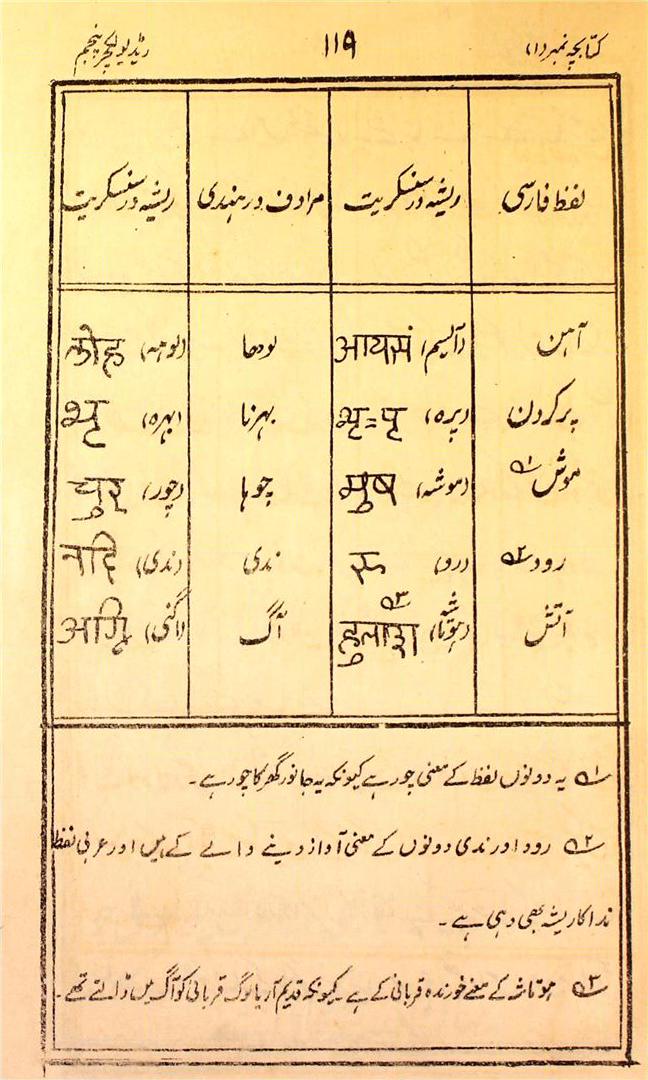 کتابچہ نمبر (۱) ۱۱۹ ریڈیو لکچر پنجم
لفظ فارسی ریشہ در سنسکریت مرادف در ہندی ریشہ در سنسکریت
آہن (آلیم) आयसं لودھا (لوہہ) लोह
پر کردن (پرہ) भृ=पृ بہرنا (بہرہ) भृ
موش ؂۱ (موشہ) मुष چوہا (چور) चुर
رود ؂۲ (رو) रु ندی (ندی) नदि
آتش (ہوتاشہ) ؂۳ हुताश آگ (اگنی) अग्नि
؂۱ یہ دونوں لفظ کے معنی چور ہے کیونکہ یہ جانور گھر کا چور ہے۔
؂۲ رود اور ندی دونوں کے معنی آواز دینے والے کے ہیں اور عربی لفظ
ندا کا ریشہ بھی وہی ہے۔
؂۳ ہوتاشہ کے معنے خورندہ قربانی کے ہے۔ کیونکہ قدیم آریا لوگ قربانی کو آگ میں ڈالتے تھے۔